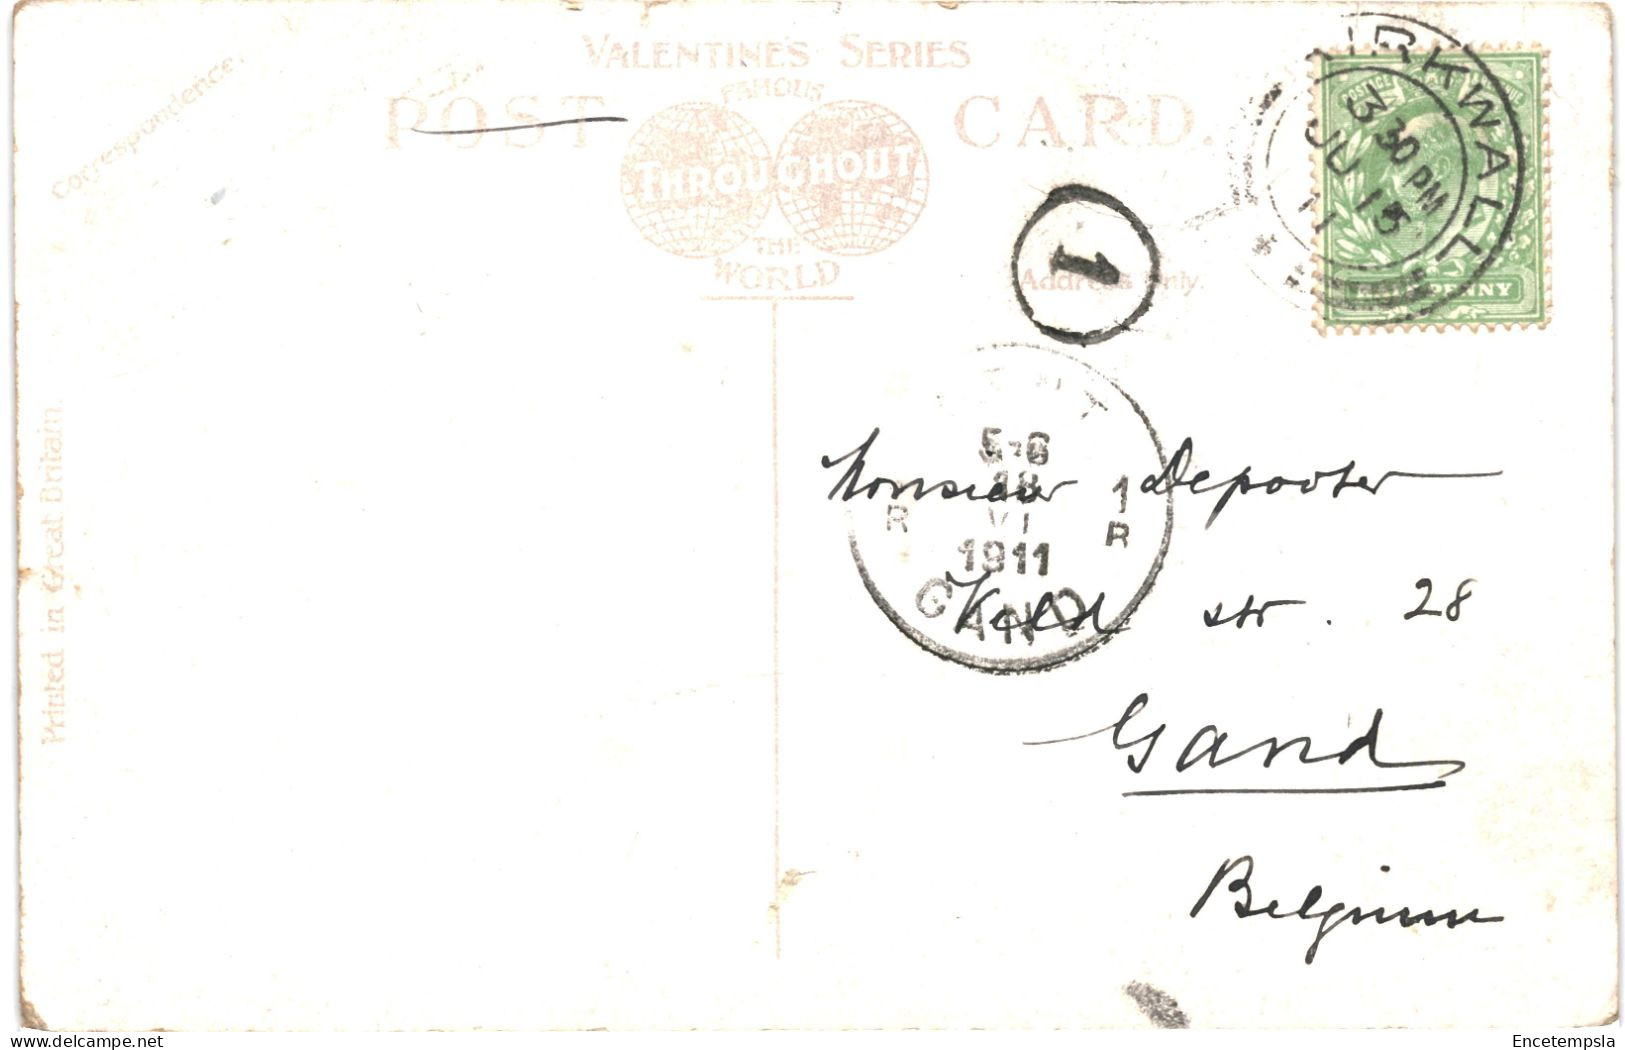 VALENTINE'S SERIES
FAMOUS
POST CARD.
THROUGHOUT
THE
WORLD
Correspondence.
Address Only.
Printed in Great Britain.
KIRKWALL
3 30 PM
JU 15
11
POSTAGE
HALFPENNY
1
5-6
18
VI
1911
R 1
R
GAND
Monsieur Depooter
Veld str. 28
Gand
Belgium
delcampe.net
Encetempsla